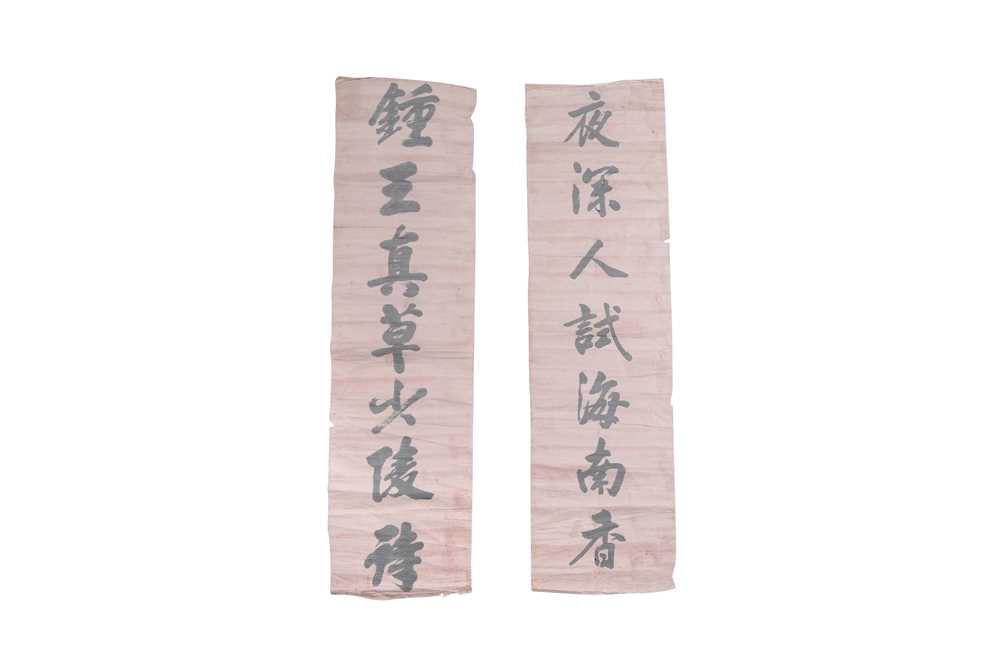 夜深人試海南香
鍾王真草少陵詩